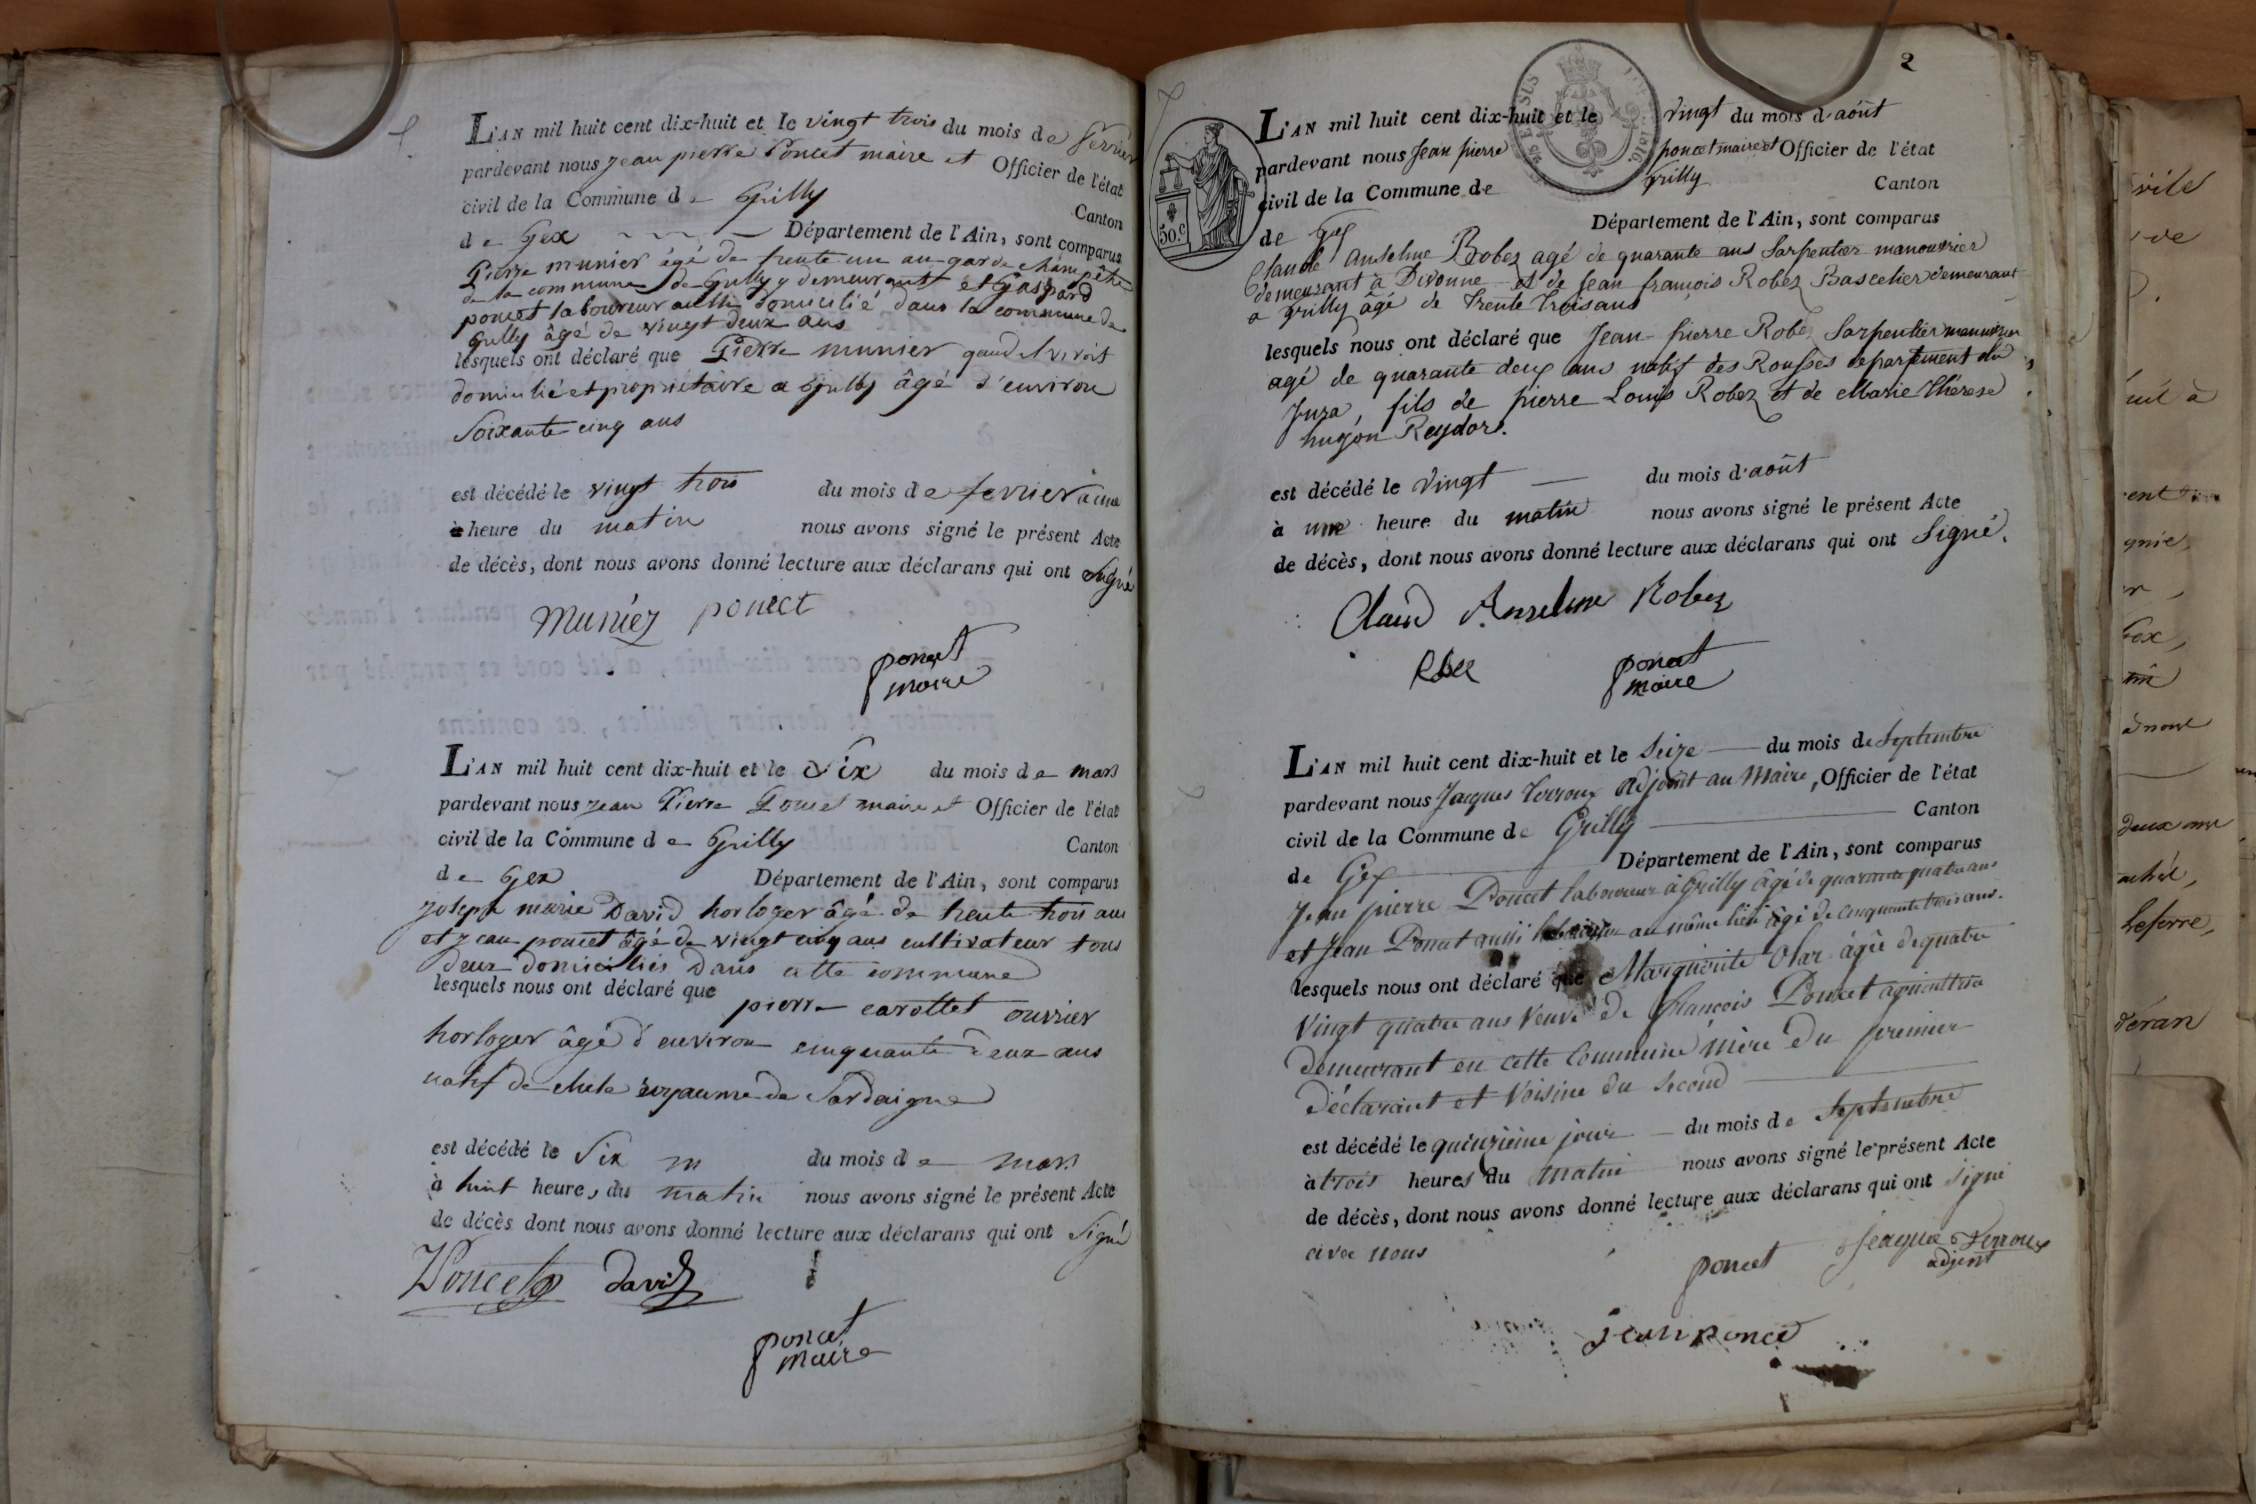 L'AN mil huit cent dix-huit et le vingt trois du mois de fevrier
pardevant nous jean pierre Poncet maire et Officier de l'état
civil de la Commune de Grilly Canton
de Gex Département de l'Ain, sont comparus
Pierre munier égé de trente un an garde champêtre
de la commune de Grilly y demeurant et Gaspard
poncet laboureur aussi domicilié dans la commune de
Grilly âgé de vingt deux ans
lesquels ont déclaré que Pierre munier quand il vivoit
domicilié et propriétaire a Grilly âgé d'environ
Soixante cinq ans
est décédé le vingt trois du mois de fevrier à une
heure du matin nous avons signé le présent Acte
de décès, dont nous avons donné lecture aux déclarans qui ont signé
Muniez poncet
poncet
maire
L'AN mil huit cent dix-huit et le Six du mois de mars
pardevant nous jean Pierre Poncet maire et Officier de l'état
civil de la Commune de Grilly Canton
de Gex Département de l'Ain, sont comparus
joseph marie David horloger âgé de trente trois ans
et jean poncet âgé de vingt cinq ans cultivateur tous
deux domiciliés dans cette commune
lesquels nous ont déclaré que pierre carottet ouvrier
horloger âgé d'environ cinquante deux ans
natif de royaume de Sardaigne
est décédé le Six du mois de mars
à huit heures du matin nous avons signé le présent Acte
de décès dont nous avons donné lecture aux déclarans qui ont Signé
Poncet david
poncet
maire
2
50.C
1816
L'AN mil huit cent dix-huit et le vingt du mois d'août
pardevant nous Jean pierre poncet maire et Officier de l'état
civil de la Commune de Grilly Canton
de Gex Département de l'Ain, sont comparus
Claude Anselme Robez agé de quarante ans Sarpentier manouvrier
demeurant à Divonne et de Jean françois Robez Bastelier demeurant
a Grilly âgé de trente trois ans
lesquels nous ont déclaré que Jean-pierre Robez Sarpentier manouvrier
agé de quarante deux ans natif des Rousses departement du
Jura, fils de pierre Louis Robez et de Marie Thérese
hugon Reydor.
est décédé le vingt du mois d'août
à une heure du matin nous avons signé le présent Acte
de décès, dont nous avons donné lecture aux déclarans qui ont Signé.
Claud Anselme Robez
poncet
maire
L'AN mil huit cent dix-huit et le Seize du mois de Septembre
pardevant nous Jacques Verroux Adjoint au Maire, Officier de l'état
civil de la Commune de Grilly Canton
de Gex Département de l'Ain, sont comparus
Jean pierre Poncet laboureur à Grilly âgé de quarante quatre ans
et Jean Poncet aussi laboureur au même lieu âgé de cinquante trois ans.
lesquels nous ont déclaré que Marguérite Olar âgée de quatre
Vingt quatre ans Veuve de François Poncet agricultrice
demeurant en cette Commune mère du premier
déclarant et Voisine du Second
est décédé le quinzième jour du mois de Septembre
à trois heures du matin nous avons signé le présent Acte
de décès, dont nous avons donné lecture aux déclarans qui ont signé
avec nous
poncet Jeaque Verroux
adjoint
jean ponce